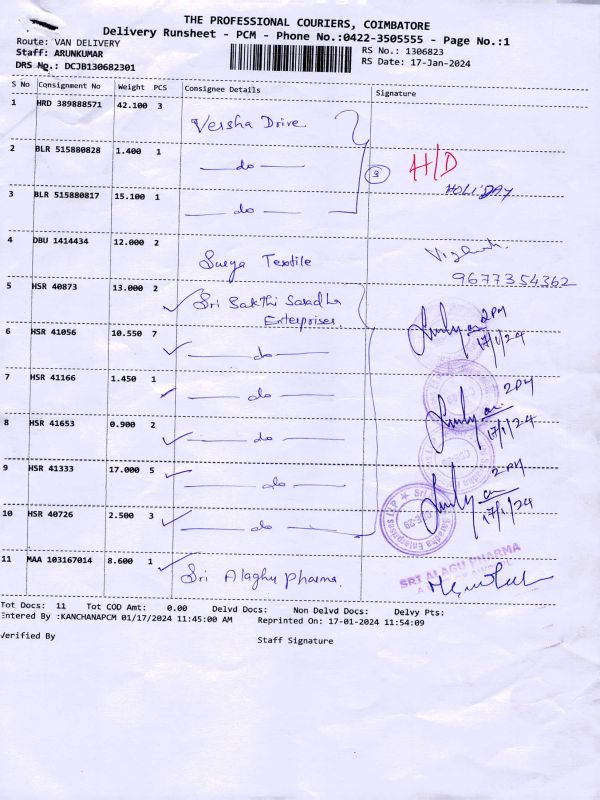 THE PROFESSIONAL COURIERS, COIMBATORE
Delivery Runsheet - PCM - Phone No.:0422-3505555 - Page No.:1
Route: VAN DELIVERY
Staff: ARUNKUMAR
DRS No.: DCJB130682301
RS No.: 1306823
RS Date: 17-Jan-2024
S No Consignment No Weight PCS Consignee Details Signature
1 HRD 389888571 42.100 3 Versha Drive
2 BLR 515880828 1.400 1 — do — 3 H/D
HOLIDAY
3 BLR 515880817 15.100 1 — do —
4 DBU 1414434 12.000 2 Surya Textile
9677354362
5 HSR 40873 13.000 2 Sri Sakthi Saradha
Enterprises. 2PM
17/1/24
6 HSR 41056 10.550 7 — do —
7 HSR 41166 1.450 1 — do — 2PM
17/1/24
8 HSR 41653 0.900 2 — do —
9 HSR 41333 17.000 5 — do — 2PM
17/1/24
10 HSR 40726 2.500 3 — do —
11 MAA 103167014 8.600 1 Sri Alaghu Pharma.
SRI ALAGU PHARMA
Tot Docs: 11 Tot COD Amt: 0.00 Delvd Docs: Non Delvd Docs: Delvy Pts:
Entered By :KANCHANAPCM 01/17/2024 11:45:00 AM Reprinted On: 17-01-2024 11:54:09
Verified By Staff Signature